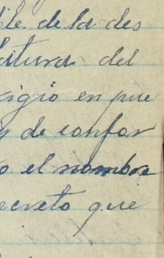 de la des
litura del
xigio en pue
de confor
o el nombr
ecreto que